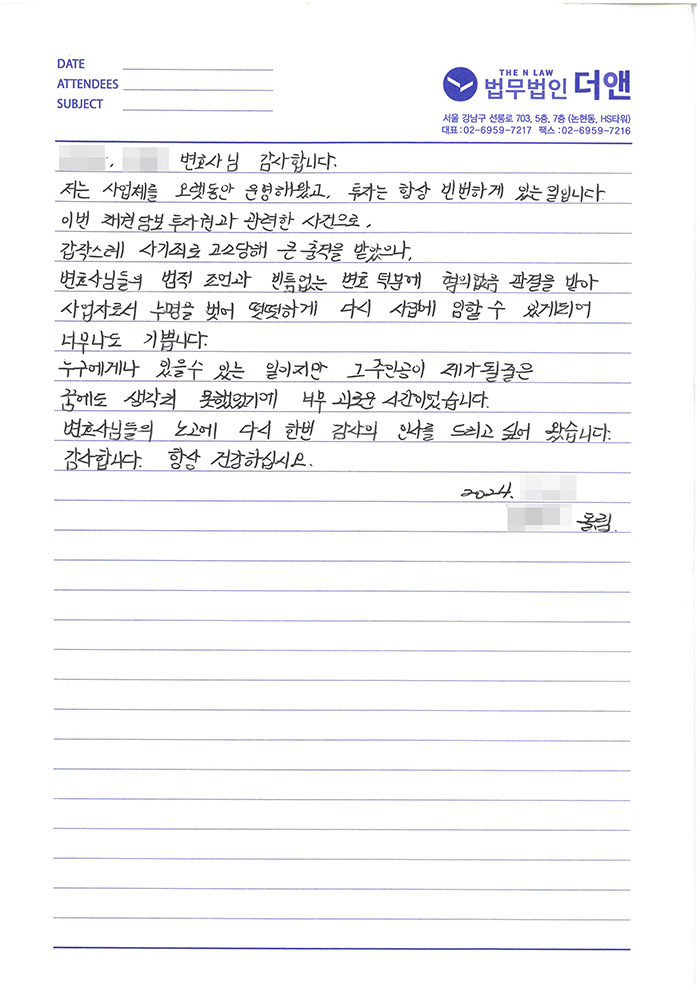 DATE
ATTENDEES
SUBJECT
THE N LAW
법무법인 더앤
서울 강남구 선릉로 703, 5층, 7층 (논현동, HS타워)
대표 : 02-6959-7217 팩스 : 02-6959-7216
, 변호사님 감사합니다.
저는 사업체를 오랫동안 운영해왔고, 투자는 항상 빈번하게 있는 일입니다.
이번 채권담보투자권과 관련한 사건으로,
갑작스레 사기죄로 고소당해 큰 충격을 받았으나,
변호사님들의 법적 조언과 빈틈없는 변호 덕분에 혐의없음 판결을 받아
사업자로서 누명을 벗어 떳떳하게 다시 사업에 임할 수 있게되어
너무나도 기쁩니다.
누구에게나 있을수 있는 일이지만 그 주인공이 제가 될줄은
꿈에도 생각치 못했었기에 너무 괴로운 시간이었습니다.
변호사님들의 노고에 다시 한번 감사의 인사를 드리고 싶어 왔습니다.
감사합니다. 항상 건강하십시오.
2024.
올림.